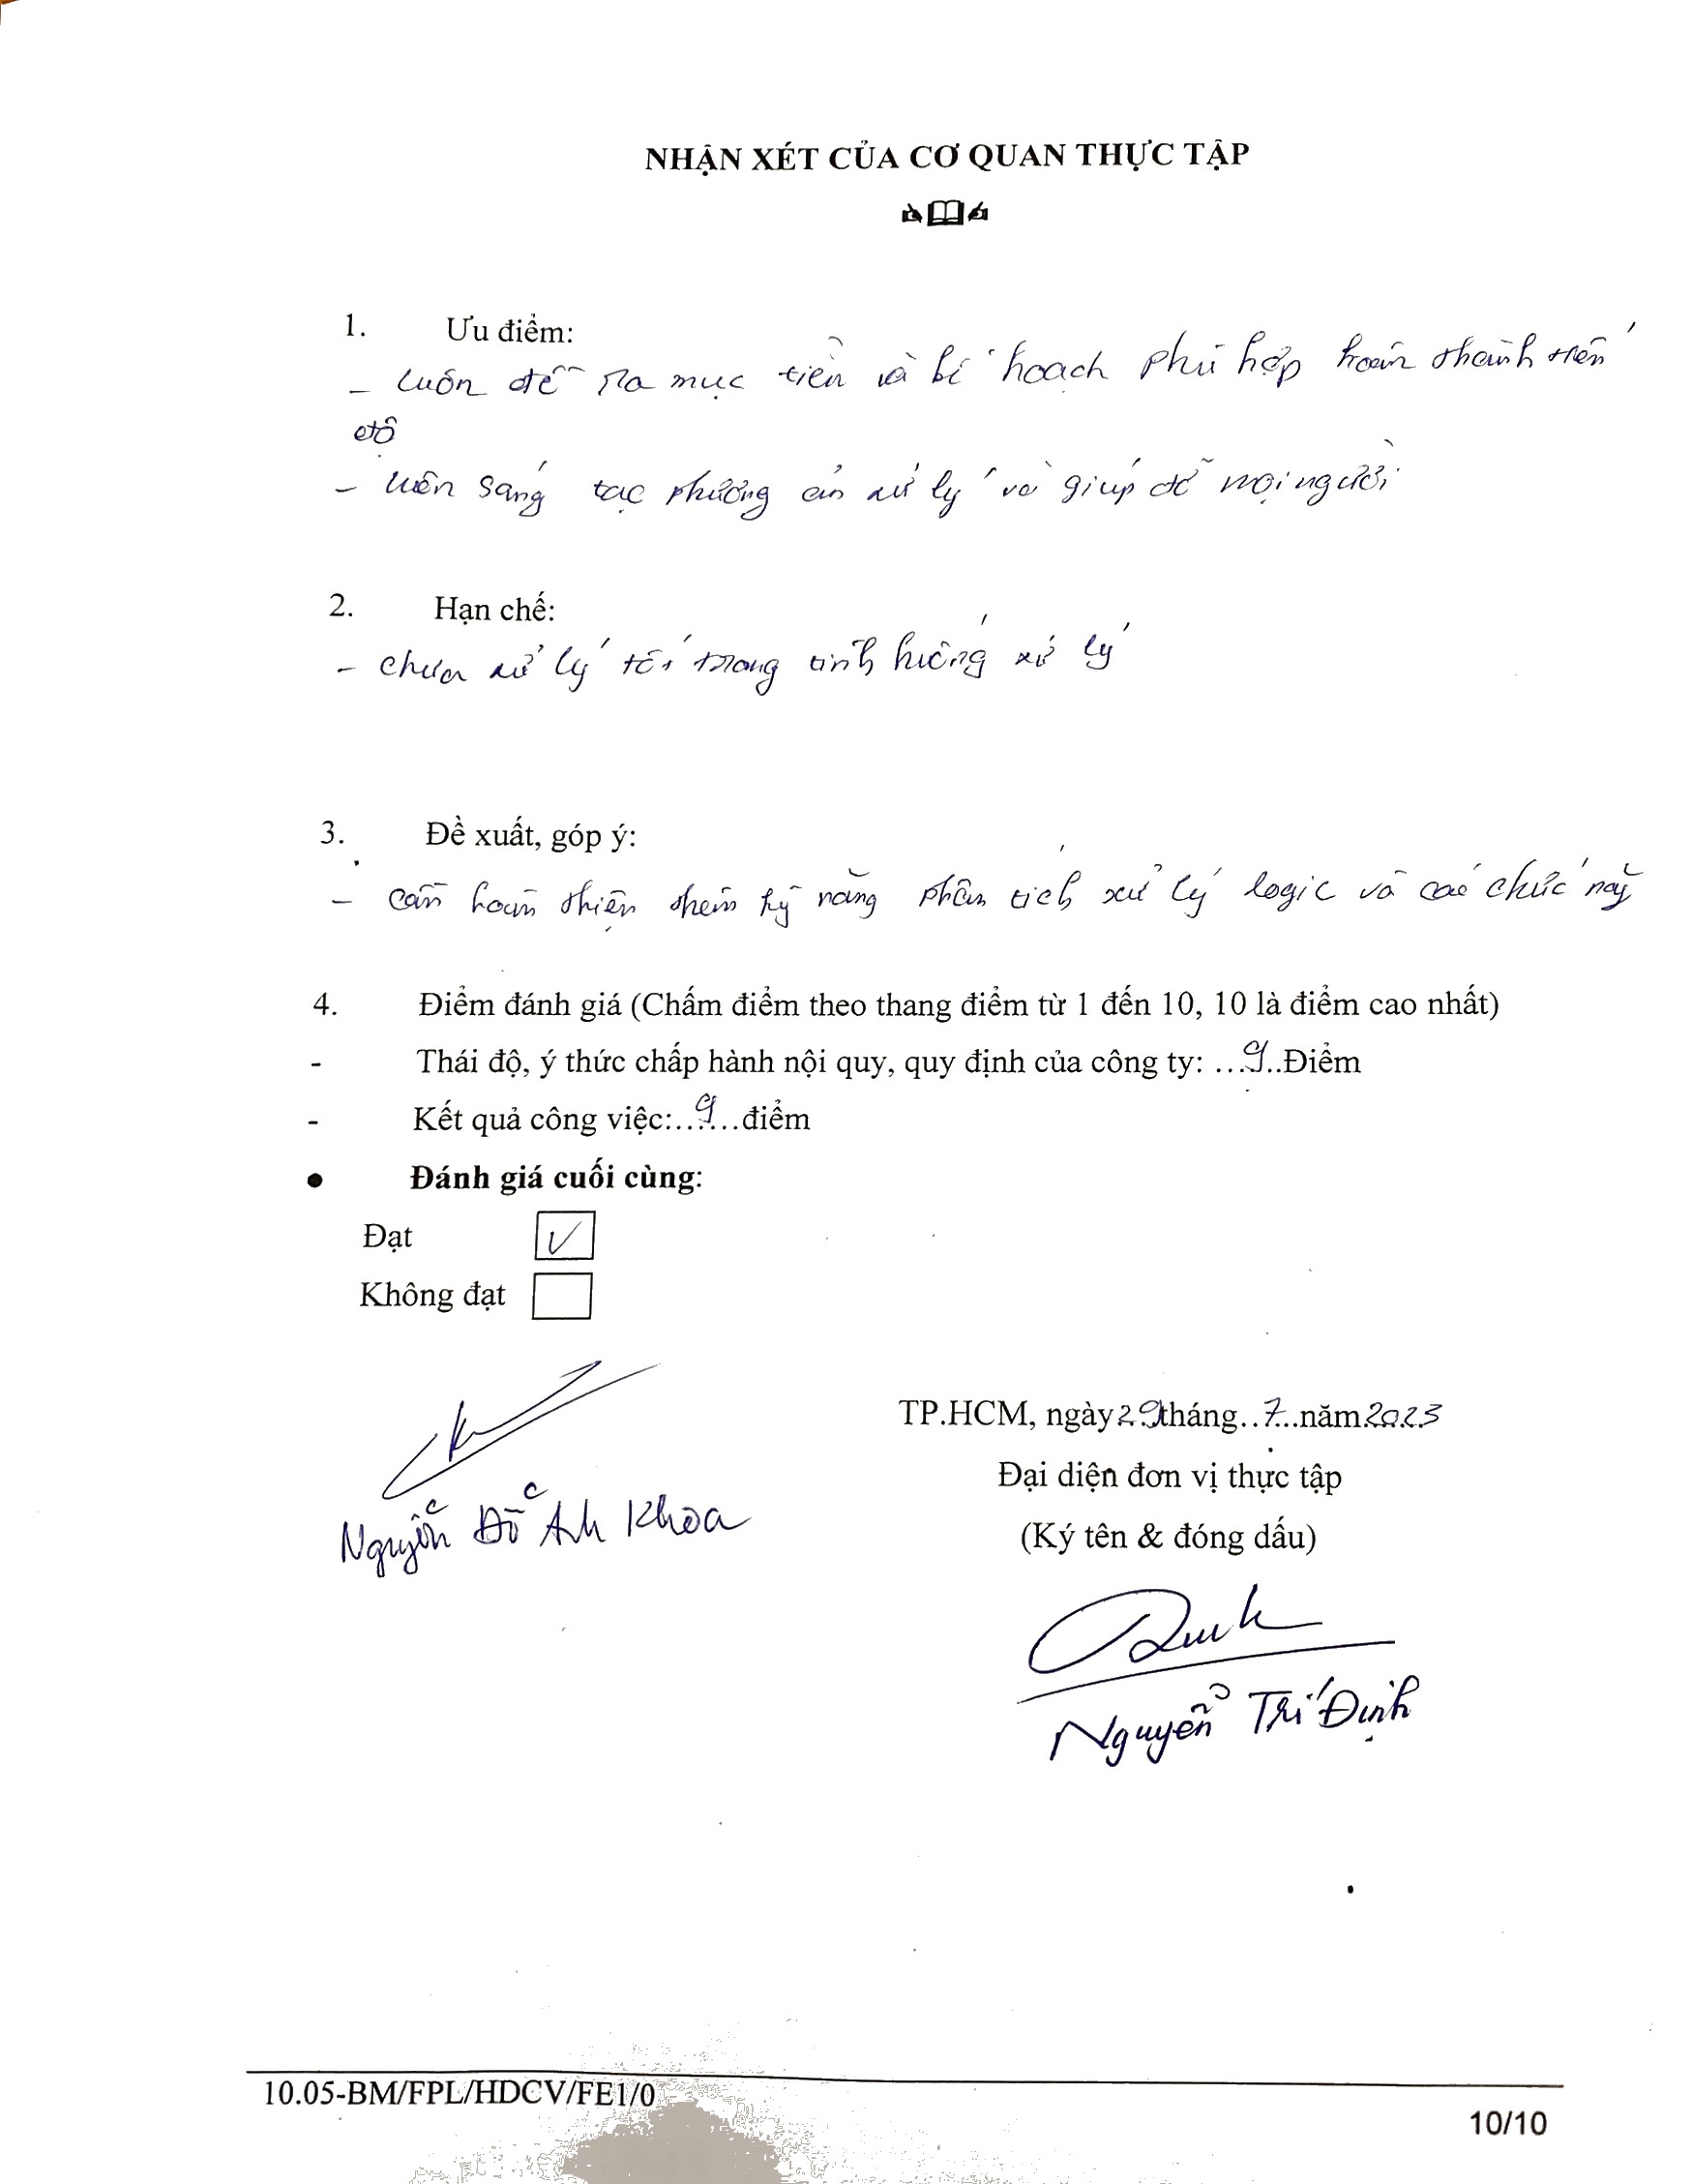 NHẬN XÉT CỦA CƠ QUAN THỰC TẬP
1. Ưu điểm:
- Luôn đề ra mục tiêu và kế hoạch phù hợp hoàn thành tiến
độ
- luôn sáng tạc phương án xử lý và giúp đỡ mọi người
2. Hạn chế:
- chưa xử lý tốt trong tình huống xử lý
3. Đề xuất, góp ý:
- cần hoàn thiện thêm kỹ năng phân tích xử lý logic và các chức
4. Điểm đánh giá (Chấm điểm theo thang điểm từ 1 đến 10, 10 là điểm cao nhất)
- Thái độ, ý thức chấp hành nội quy, quy định của công ty: ...9..Điểm
- Kết quả công việc:...9...điểm
● Đánh giá cuối cùng:
Đạt ✓
Không đạt
TP.HCM, ngày 29 tháng..7..năm 2023
Đại diện đơn vị thực tập
(Ký tên & đóng dấu)
Nguyễn Đỗ Anh Khoa
Nguyễn Trí Định
10.05-BM/FPL/HDCV/FE1/0
10/10